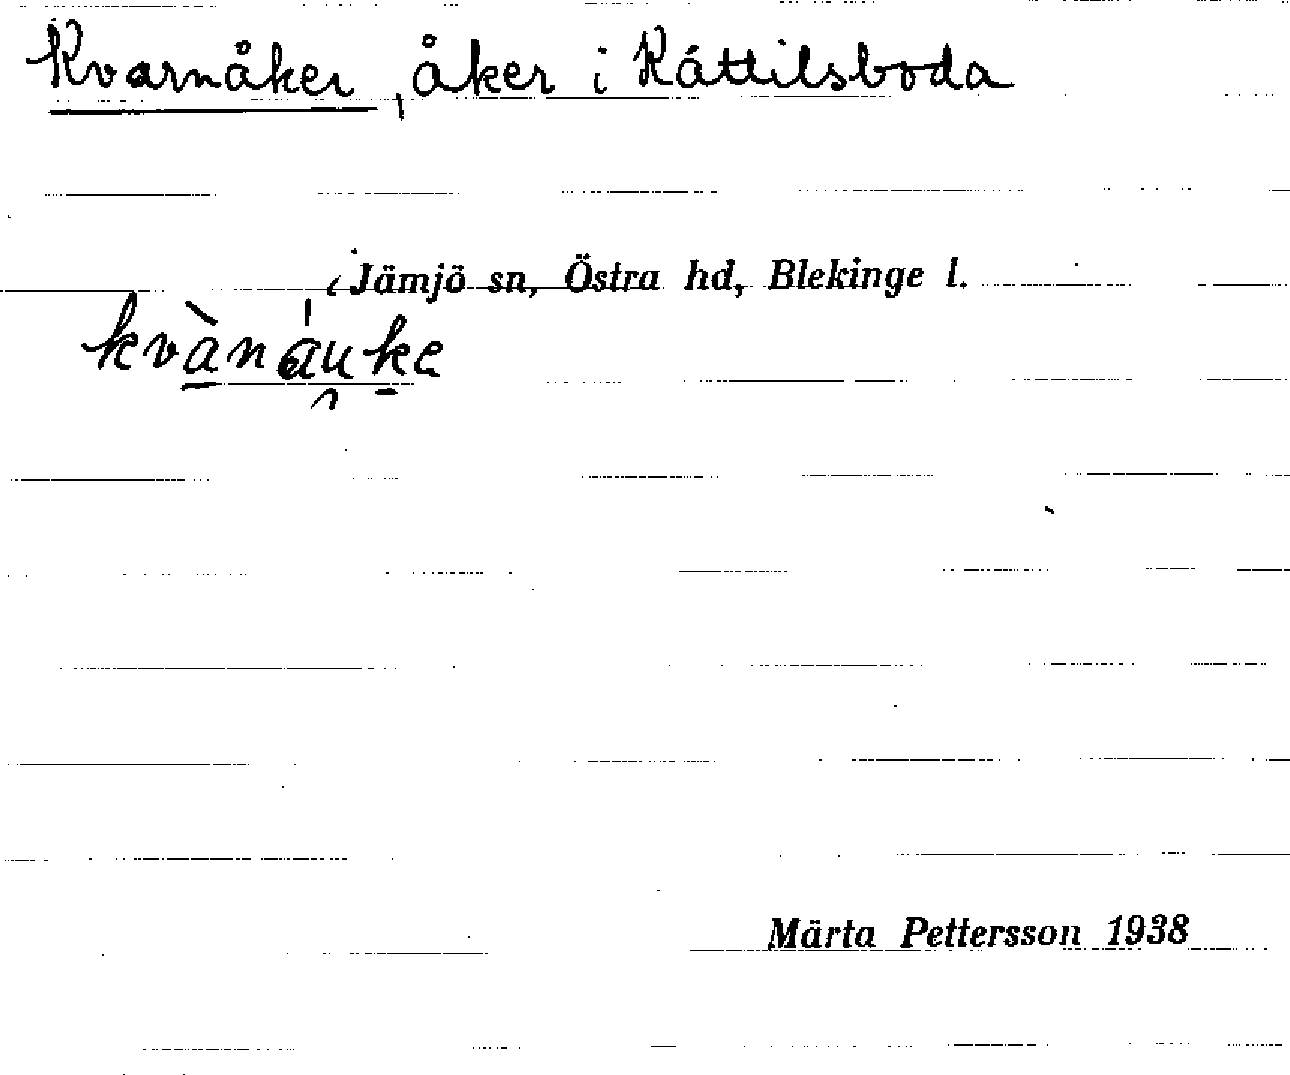 Kvarnåker, åker i Kättilsboda
i Jämjö sn, Östra hd, Blekinge l.
kvànáuke
Märta Pettersson 1938